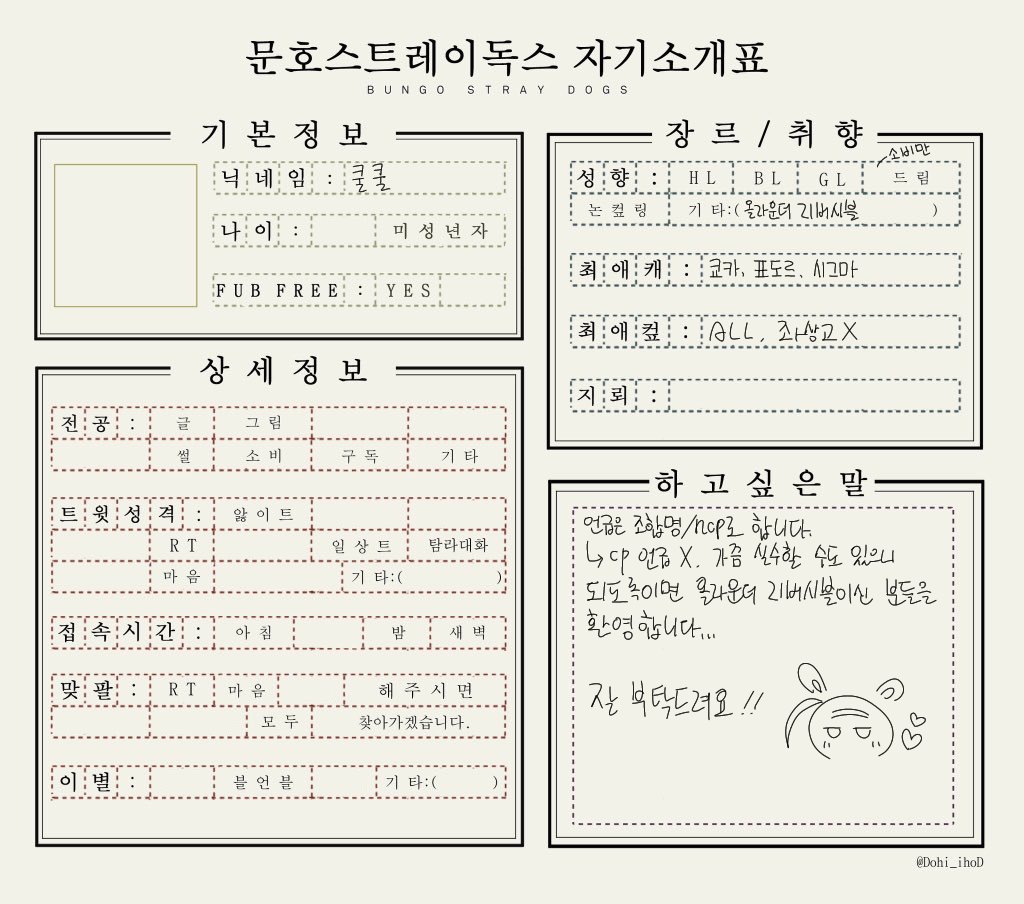 문호스트레이독스 자기소개표
BUNGO STRAY DOGS
기본정보
닉네임 : 쿨쿨
나이 : 미성년자
FUB FREE : YES
상세정보
전공 : 글 그림
썰 소비 구독 기타
트윗성격 : 앓이트
RT 일상트 탐라대화
마음 기타:( )
접속시간 : 아침 밤 새벽
맞팔 : RT 마음 해주시면
모두 찾아가겠습니다.
이별 : 블언블 기타:( )
장르/취향
소비만
성향 : HL BL GL 드림
논컾링 기타:(올라운더 리버시블 )
최애캐 : 쿄카, 표도르, 시그마
최애컾 : ALL, 좌상고X
지뢰 :
하고싶은말
언급은 조합명/ncp로 합니다.
↳ cp 언급 X. 가끔 실수할 수도 있으니
되도록이면 올라운더 리버시블이신 분들을
환영합니다...
잘 부탁드려요!!
@Dohi_ihoD